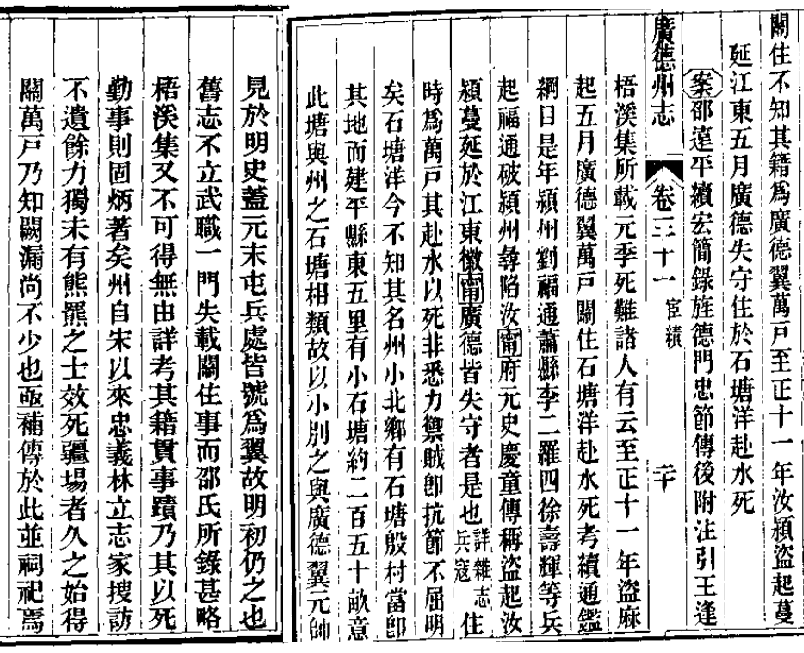 關住不知其籍為廣德翼萬戶至正十一年汝潁盜起蔓
延江東五月廣德失守住於石塘洋赴水死
案邵遠平續宏簡錄旌德門忠節傳後附注引王逢
廣德州志 卷三十一 宦績 二十
梧溪集所載元季死難諸人有云至正十一年盜麻
起五月廣德翼萬戶關住石塘洋赴水死考續通鑑
綱目是年潁州劉福通蕭縣李二羅四徐壽輝等兵
起福通破潁州尋陷汝甯府元史慶童傳稱盜起汝
潁蔓延於江東徽甯廣德皆失守者是也詳雜志兵寇住
時為萬戶其赴水以死非悉力禦賊卽抗節不屈明
矣石塘洋今不知其名州小北鄉有石塘殷村當卽
其地而建平縣東五里有小石塘約二百五十畝意
此塘與州之石塘相類故以小別之與廣德翼元帥
見於明史蓋元末屯兵處皆號為翼故明初仍之也
舊志不立武職一門失載關住事而邵氏所錄甚略
梧溪集又不可得無由詳考其籍貫事蹟乃其以死
勤事則固炳著矣州自宋以來忠義林立志家搜訪
不遺餘力獨未有熊羆之士效死疆場者久之始得
關萬戶乃知闕漏尚不少也亟補傳於此並祠祀焉